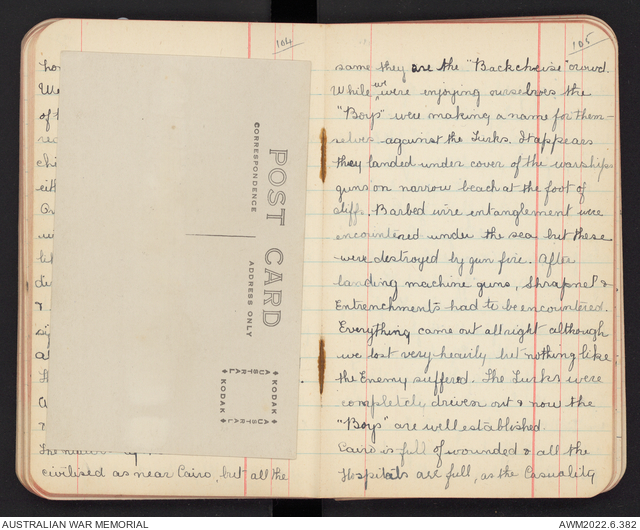 104
ho
We
of t
chi
eit
li
&
civilised as near Cairo, but all the
POST CARD
CORRESPONDENCE
ADDRESS ONLY
AUSTRALIA
KODAK
KODAK
AUSTRALIA
105
same they are the "Backcheise" crowd.
While we were enjoying ourselves the
"Boys" were making a name for them-
selves against the Turks. It appears
they landed under cover of the warships
guns on narrow beach at the foot of
cliffs. Barbed wire entanglement were
encountered under the sea but these
were destroyed by gun fire. After
landing machine guns, Shrapnel &
Entrenchments had to be encountered.
Everything came out allright although
we lost very heavily but nothing like
the Enemy suffered. The Turks were
completely driven out & now the
"Boys" are well established.
Cairo is full of wounded & all the
Hospitals are full, as the Casuality
AUSTRALIAN WAR MEMORIAL
AWM2022.6.382